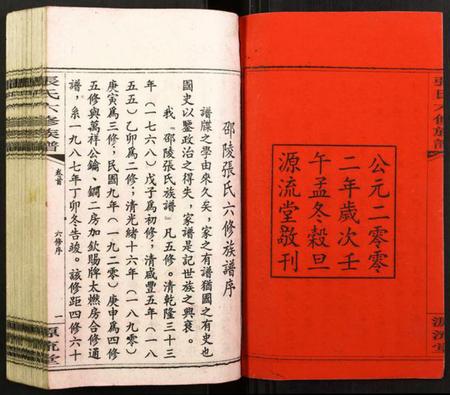 張氏六修族譜
公元二零零
二年歲次壬
午孟冬穀旦
源流堂敬刊
源流堂
邵陵張氏六修族譜序
譜牒之學由來久矣，家之有譜猶國之有史也
國史以鑒政治之得失，家譜是記世族之興衰。
我『邵陵張氏族譜』凡五修。清乾隆三十三
年（一七六八）戊子爲初修；清咸豐五年（一八
五五）乙卯爲二修；清光緒十六年（一八九〇）
庚寅爲三修；民國九年（一九二〇）庚申爲四修
五修與萬祥公鑰、鐗二房加欽賜牌太燃房合修通
譜，系一九八七年丁卯冬告竣。該修距四修六十
張氏六修族譜
卷首
六修序
一
源流堂